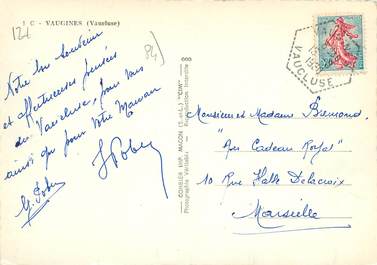 1 C - VAUGINES (Vaucluse)
124
84)
Notre bon souvenir
et affectueuses pensées
du Vaucluse, pour vous
ainsi que pour votre Maman
COMBIER IMP. MACON (S.-&-L.) "CIM"
Photographie Véritable - Reproduction Interdite
VAUCLUSE
Monsieur et Madame Bremond
"Au Cadeau Royal"
10 Rue Halle Delacroix
Marseille